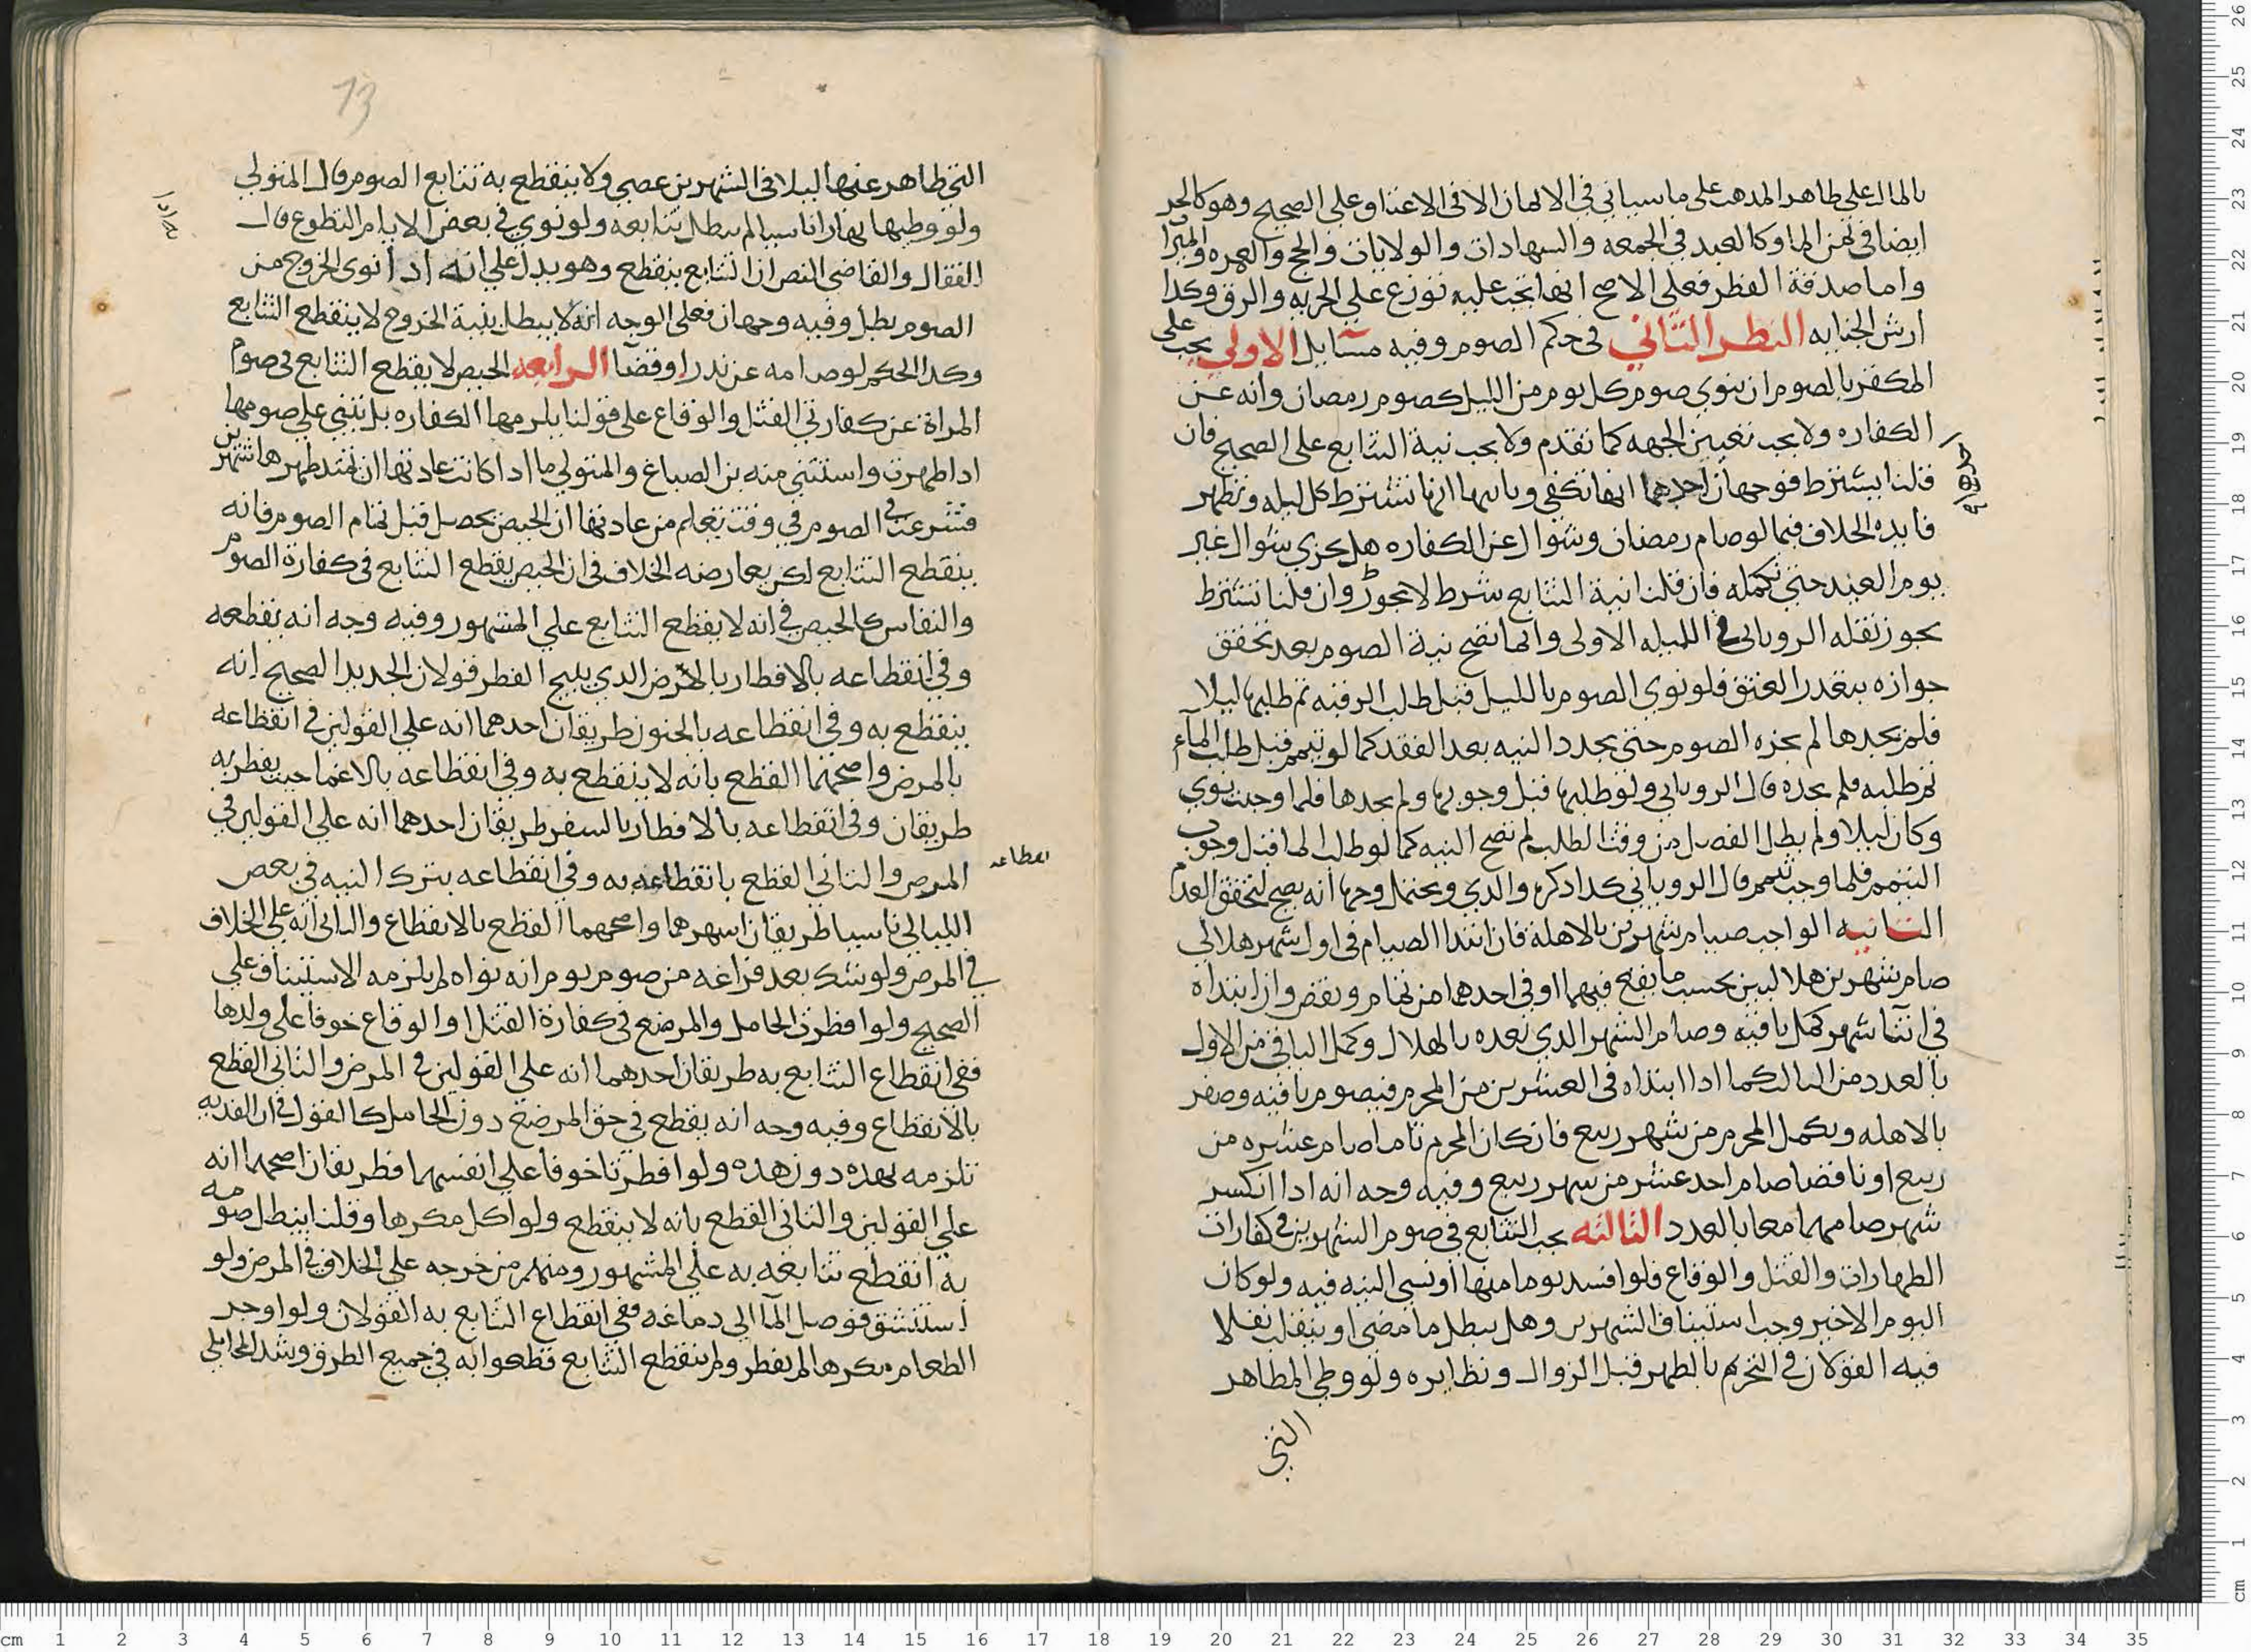 بالمال على ظاهر المدهب على ما سياتي في الايمان الا في الاعتاق على الصحيح وهو كالحر
ايضا في ثمن الما وكالعبد في الجمعه والشهادات والولايات والحج والعمره والميراث
واما صدقة الفطر فعلى الاصح انها تجب عليه توزع على الحريه والرق وكدا
ارش الجنايه النظر الثاني في حكم الصوم وفيه مسايل الاولى يجب على
المكفر بالصوم ان ينوي صوم كل يوم من الليل كصوم رمضان وانه عن
الكفاره ولا يجب تعيين الجهه كما تقدم ولا يجب نية التتابع على الصحيح فان
قلنا يشترط فوجهان احدهما انها تكفي وثانيها انها تشترط كل ليله وتظهر
فايده الخلاف فيما لو صام رمضان وشوال عن الكفاره هل يجزي شوال غير
يوم العيد حتى تكمله فان قلنا نية التتابع شرط لا يجوز وان قلنا تشترط
يجوز نقله الروياني في الليله الاولى وانما تصح نية الصوم بعد تحقق
جوازه بتعدر العتق فلو نوي الصوم بالليل قبل طلب الرقبه ثم طلبها ليلا
فلم يجدها لم يجزه الصوم حتى يجدد النيه بعد الفقد كما لو تيمم قبل طلب المآء
ثم طلبه فلم يجده قال الروياني ولو طلبها قبل وجوبها ولم يجدها فلما وجبت نوي
وكان ليلا ولم يطل الفصل من وقت الطلب لم تصح النيه كما لو طلب الما قبل وجوب
التيمم فلما وجب تيمم قال الروياني كدا دكره والدي ويحتمل وجها انه يصح لتحقق العدم
الثانيه الواجب صيام شهرين بالاهلة فان ابتدا الصيام في اول شهر هلالي
صام شهرين هلاليين بحسب ما يقع فيهما او في احدهما من تمام ونقص وان ابتداه
في اثنا شهر كمل باقيه وصام الشهر الدي بعده بالهلال وكمل الباقي من الاول
بالعدد من الثالث كما ادا ابتداه في العشرين من المحرم فيصوم باقيه وصفر
بالاهله ويكمل المحرم من شهر ربيع فان كان المحرم تاما صام عشره من
ربيع او ناقصا صام احد عشر من شهر ربيع وفيه وجه انه ادا انكسر
شهر صامهما معا بالعدد الثالثه يجب التتابع في صوم الشهرين في كفارات
الطهارات والقتل والوقاع فلو افسد يوما منها او نسي النيه فيه ولو كان
اليوم الاخير وجب استيناف الشهرين وهل يبطل ما مضى او ينقلب نفلا
فيه القولان في التحرم بالظهر قبل الزوال ونظايره ولو وطي المظاهر
التي
التي ظاهر عنها ليلا في الشهرين عصي ولا ينقطع به تتابع الصوم قال المتولي
ولو وطيها نهارا ناسيا لم يبطل تتابعه ولو نوي في بعض الايام التطوع قال
القفال والقاضي النص ان التتابع ينقطع وهو يدل على انه ادا نوى الخروج من
الصوم بطل وفيه وجهان فعلى الوجه انه لا يبطل بنية الخروج لا ينقطع التتابع
وكدا الحكم لو صامه عن ندر او قضآ الرابعه الحيض لا يقطع التتابع في صوم
المراة عن كفارتي القتل والوقاع على قولنا يلزمها الكفاره بل تبني على صومها
ادا طهرت واستثنى منه بن الصباغ والمتولي ما ادا كانت عادتها ان يمتد طهرها شهرين
فشرعت في الصوم في وقت تعلم من عادتها ان الحيض يحصل قبل تمام الصوم فانه
ينقطع التتابع لكن يعارضه الخلاف في ان الحيض يقطع التتابع في كفارة الصوم
والنفاس كالحيض في انه لا يقطع التتابع على المشهور وفيه وجه انه يقطعه
وفي انقطاعه بالافطار بالمرض الدي يبيح الفطر قولان الجديد الصحيح انه
ينقطع به وفي انقطاعه بالجنون طريقان احدهما انه على القولين في انقطاعه
بالمرض واصحهما القطع بانه لا ينقطع به وفي انقطاعه بالاغما حيث يفطر به
طريقان وفي انقطاعه بالافطار بالسفر طريقان احدهما انه على القولين في
المرض والثاني القطع بانقطاعه به وفي انقطاعه بترك النيه في بعض
انقطاعه
الليالي ناسيا طريقان اشهرهما واصحهما القطع بالانقطاع والثاني انه على الخلاف
في المرض ولو شك بعد فراغه من صوم يوم انه نواه لم يلزمه الاستيناف على
الصحيح ولو افطرت الحامل والمرضع في كفارة القتل او الوقاع خوفا على ولدها
ففي انقطاع التتابع به طريقان احدهما انه على القولين في المرض والثاني القطع
بالانقطاع وفيه وجه انه يقطع في حق المرضع دون الحامل كالقول في ان الفديه
تلزمه بهده دون هده ولو افطرتا خوفا على انفسهما فطريقان اصحهما انه
على القولين والثاني القطع بانه لا ينقطع ولو اكل مكرها وقلنا يبطل صومه
به انقطع تتابعه به على المشهور ومنهم من خرجه على الخلاف في المرض ولو
استنشق فوصل المآ الى دماغه ففي انقطاع التتابع به القولان ولو اوجر
الطعام مكرها لم يفطر ولم ينقطع التتابع قطعوا به في جميع الطرق وشد المحاملي